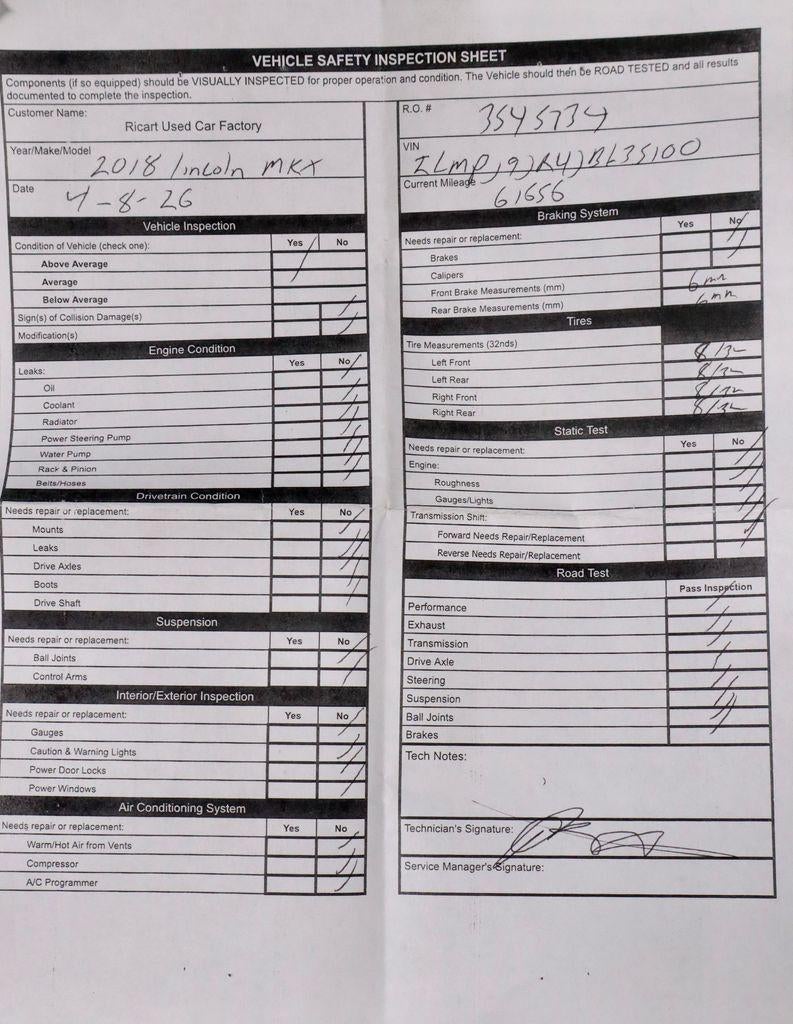 VEHICLE SAFETY INSPECTION SHEET
Components (if so equipped) should be VISUALLY INSPECTED for proper operation and condition. The Vehicle should then be ROAD TESTED and all results
documented to complete the inspection.
Customer Name:
Ricart Used Car Factory
Year/Make/Model
2018 Lincoln MKX
Date
4-8-26
Vehicle Inspection
Condition of Vehicle (check one): Yes No
Above Average
Average
Below Average
Sign(s) of Collision Damage(s)
Modification(s)
Engine Condition
Leaks: Yes No
Oil
Coolant
Radiator
Power Steering Pump
Water Pump
Rack & Pinion
Belts/Hoses
Drivetrain Condition
Needs repair or replacement: Yes No
Mounts
Leaks
Drive Axles
Boots
Drive Shaft
Suspension
Needs repair or replacement: Yes No
Ball Joints
Control Arms
Interior/Exterior Inspection
Needs repair or replacement: Yes No
Gauges
Caution & Warning Lights
Power Door Locks
Power Windows
Air Conditioning System
Needs repair or replacement: Yes No
Warm/Hot Air from Vents
Compressor
A/C Programmer
R.O. #
3545734
VIN
Current Mileage
61656
Braking System
Needs repair or replacement: Yes No
Brakes
Calipers
Front Brake Measurements (mm) 6mm
Rear Brake Measurements (mm) 6mm
Tires
Tire Measurements (32nds)
Left Front 8/32
Left Rear 8/32
Right Front 8/32
Right Rear 8/32
Static Test
Needs repair or replacement: Yes No
Engine:
Roughness
Gauges/Lights
Transmission Shift:
Forward Needs Repair/Replacement
Reverse Needs Repair/Replacement
Road Test
Pass Inspection
Performance
Exhaust
Transmission
Drive Axle
Steering
Suspension
Ball Joints
Brakes
Tech Notes:
Technician's Signature:
Service Manager's Signature: